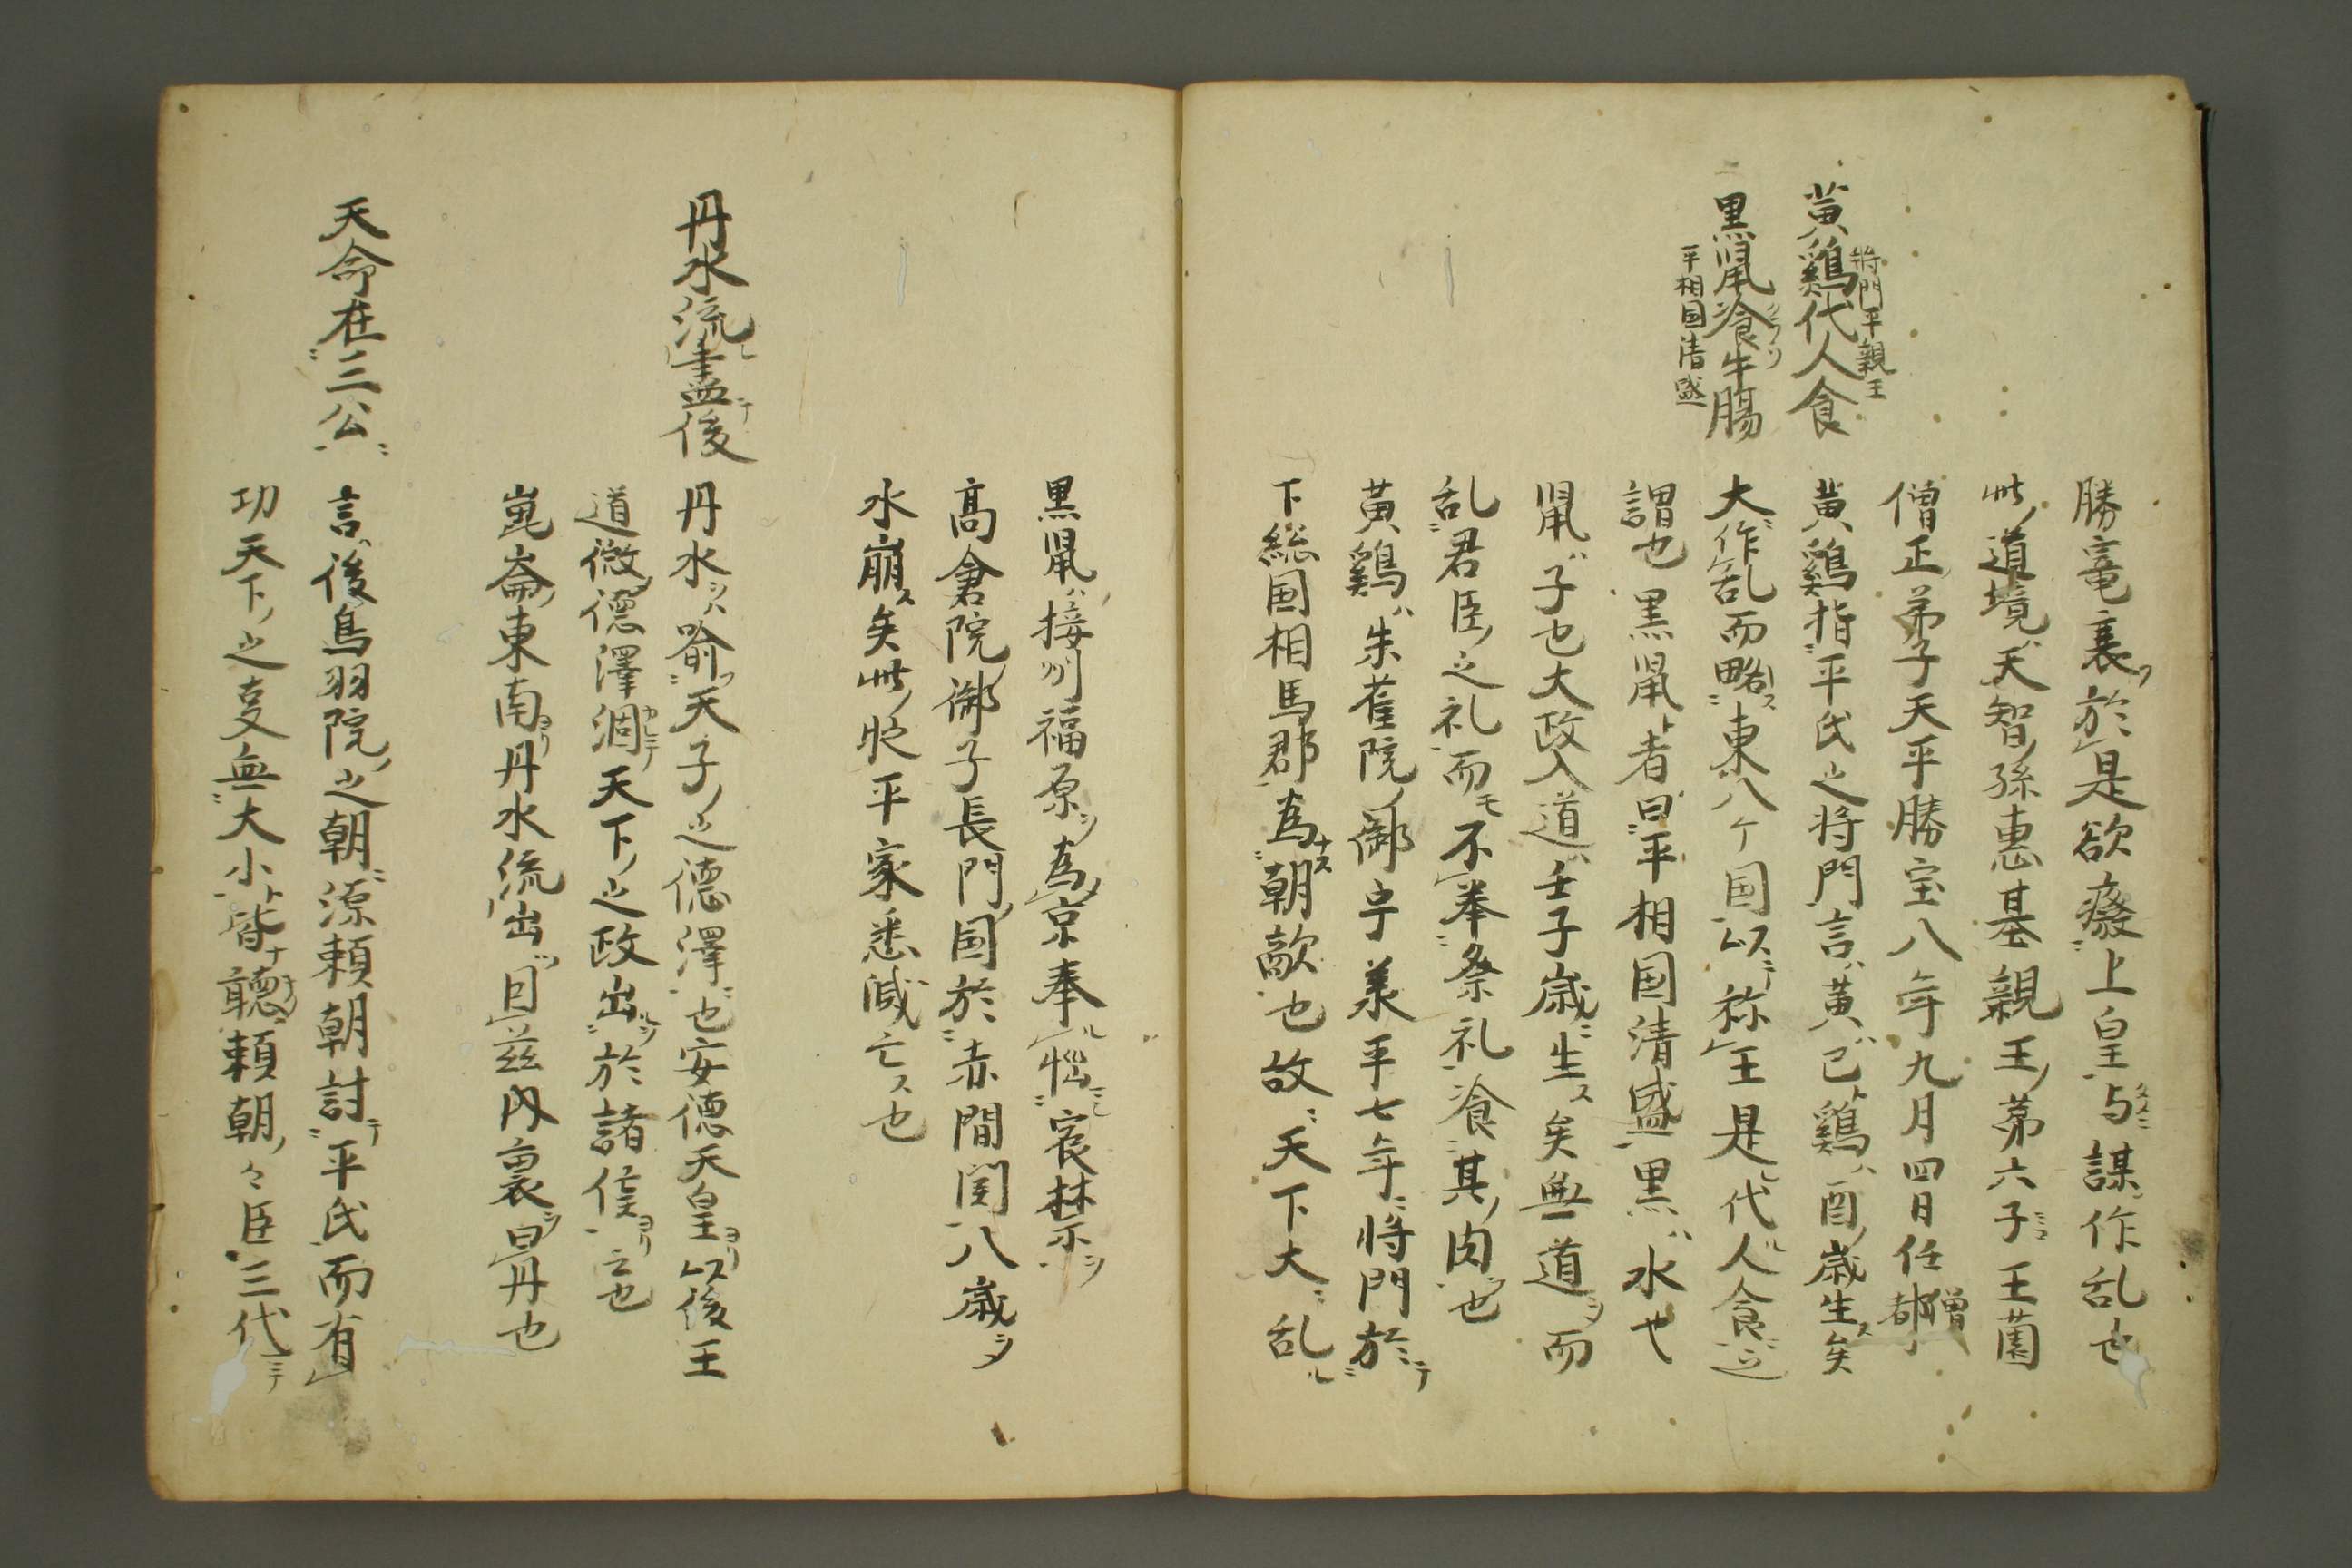 勝竜衰於是欲癈上皇与謀作乱也
此道境天智孫恵基親王第六子王薗
僧正弟子天平勝宝八年九月四日任僧都
将門平親王
黄鷄代人食
黒鼠飡牛腸
平相国清盛
黄鷄指平氏之将門言黄己鷄酉歳生矣
大作乱而略東八ケ国以称王是代人食
謂也黒鼠者曰平相国清盛黒水也
鼠子也大政入道壬子歳生矣無道而
乱君臣之礼而不奉祭礼飡其肉也
黄鷄朱雀院御宇羕平七年将門於
下総国相馬郡為朝敵也故天下大乱
黒鼠接州福原為京奉悩宸禁
高倉院御子長門国於赤間関八歳
水崩矣此時平家悉滅亡也
丹水流尽後
丹水喩天子之徳澤也安徳天皇以後王
道微徳澤涸天下之政出於諸侯云也
崑崙東南丹水流出因茲内裏曰丹也
天命在三公
言後鳥羽院之朝源頼朝討平氏而有
功天下之叓無大小皆聴頼朝々臣三代